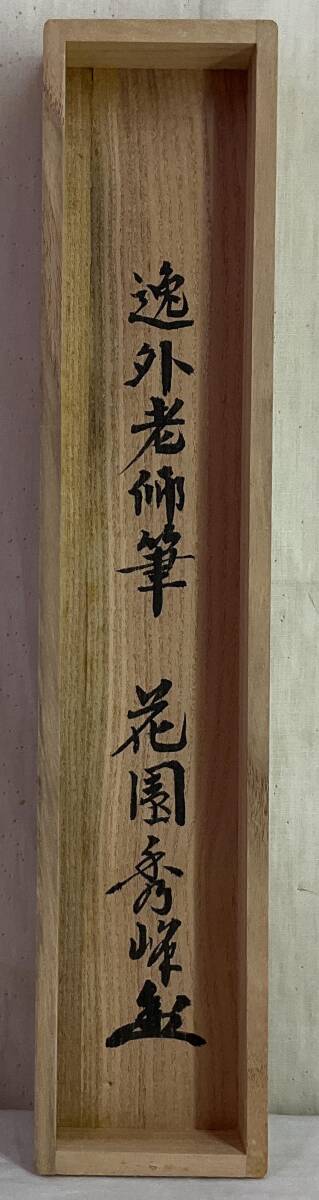 逸外老師筆 花園秀峰題